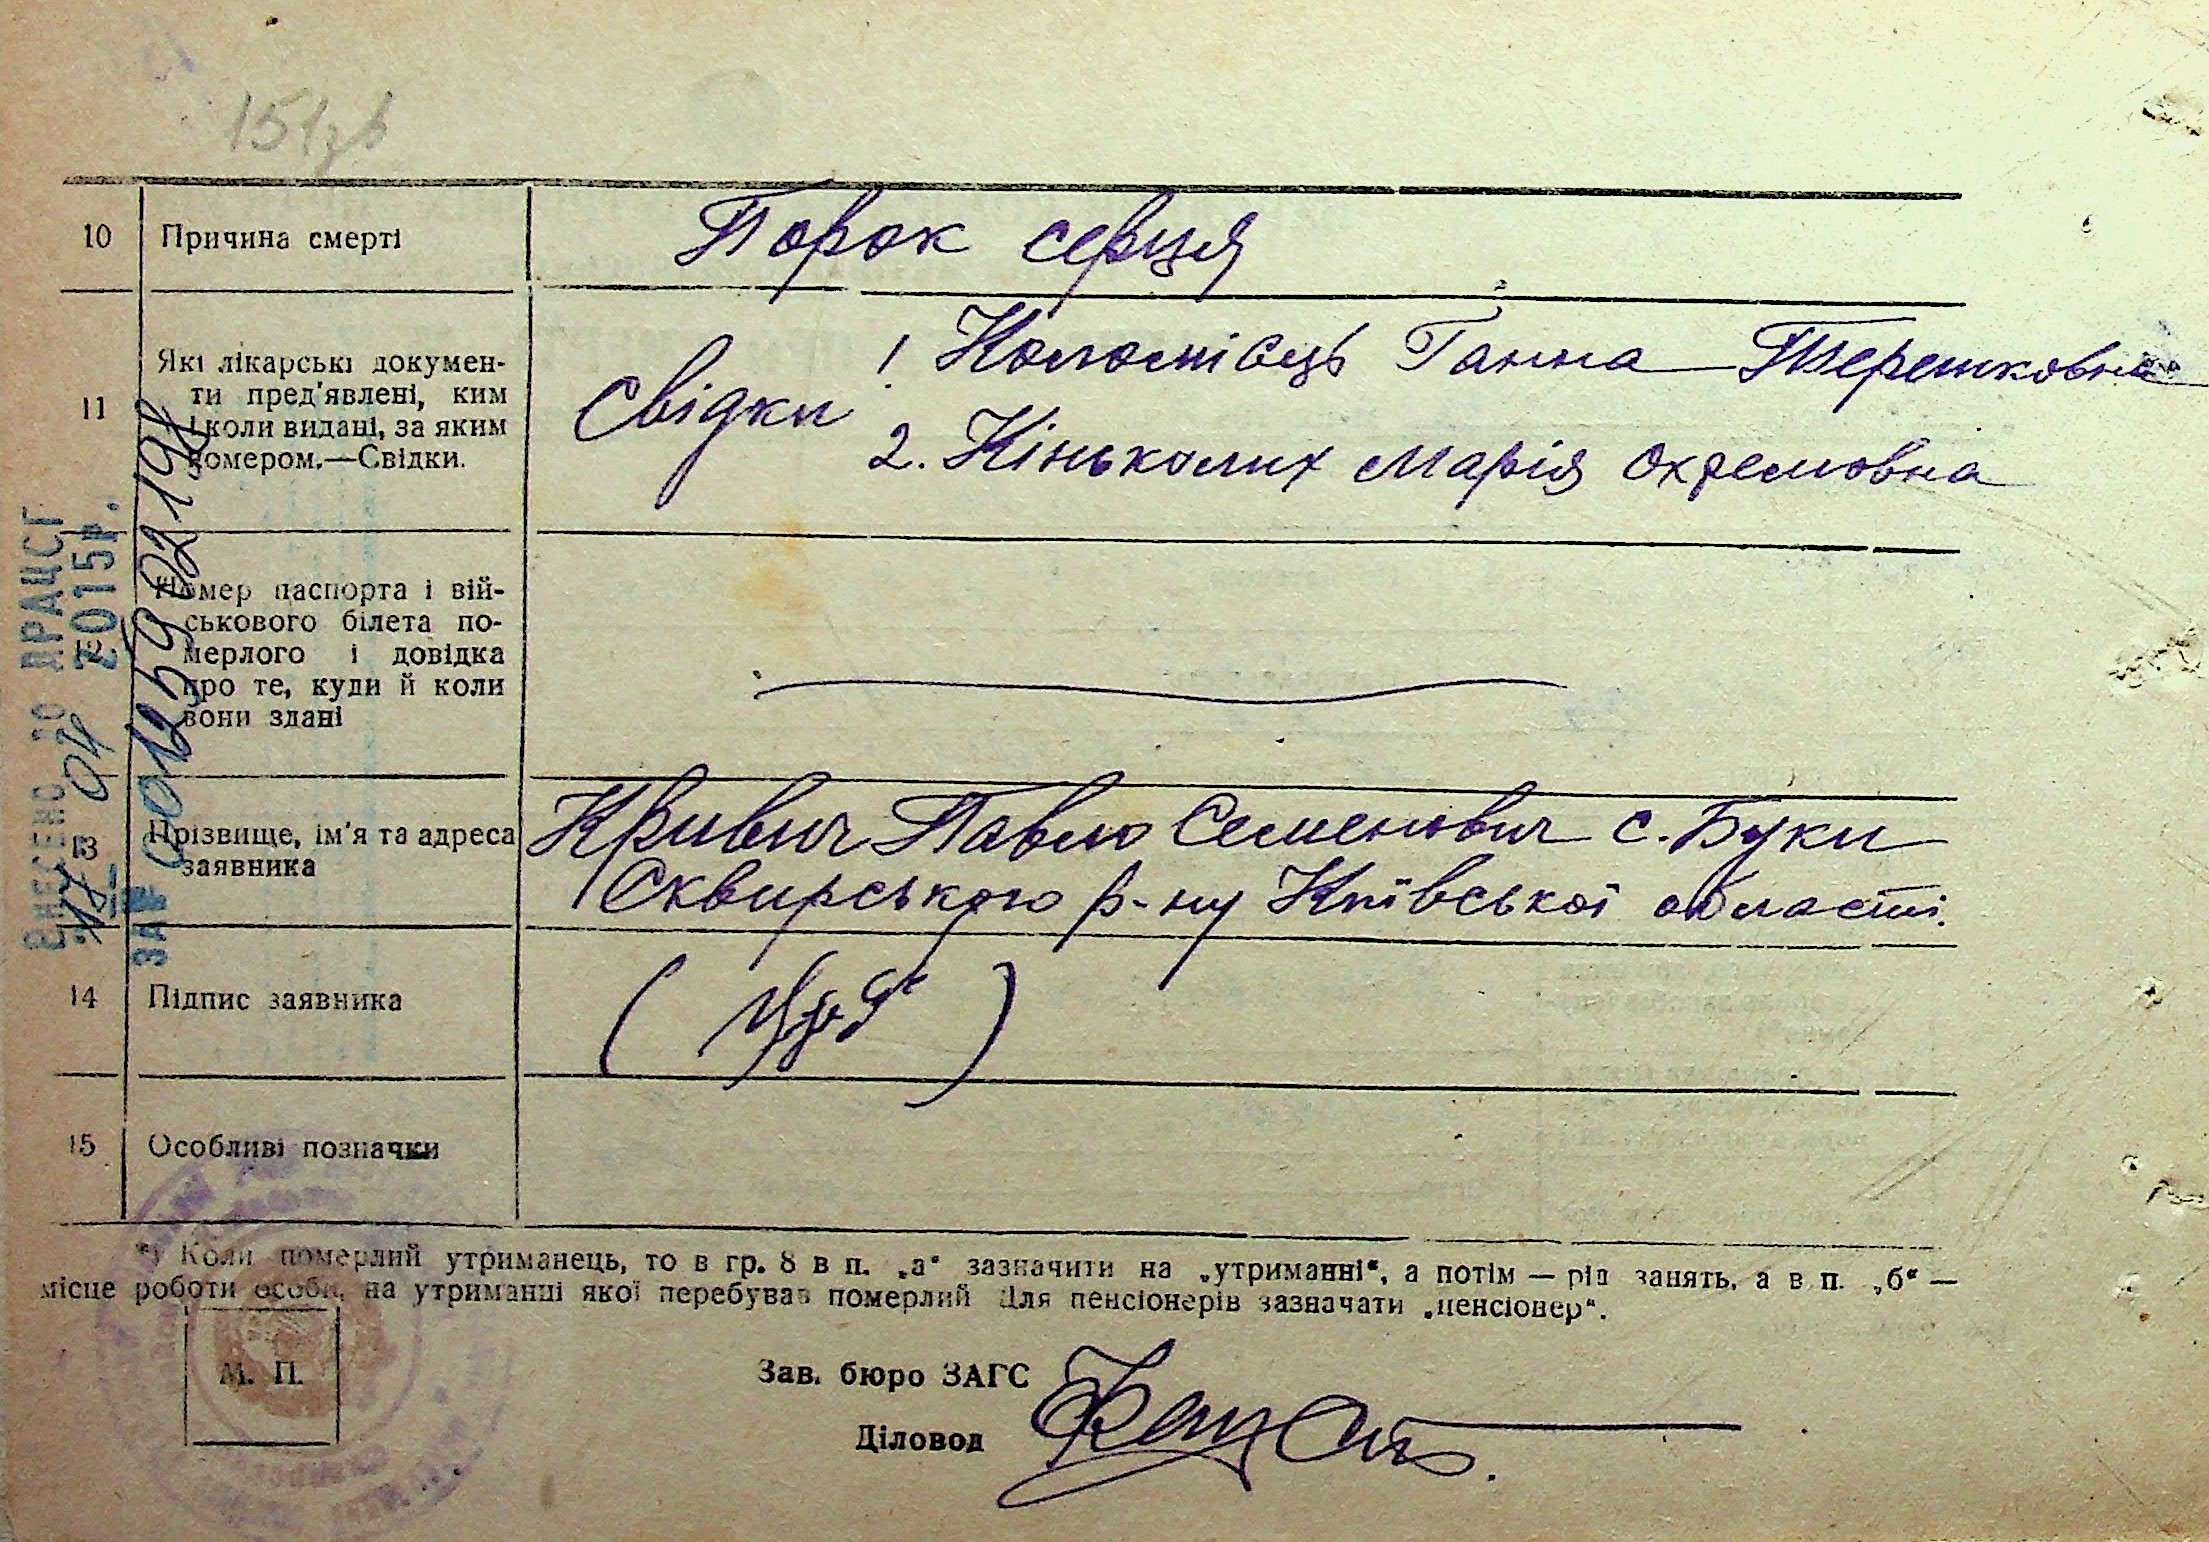 151зв
10 Причина смерті Порок серця
11 Які лікарські докумен-
ти пред'явлені, ким
і коли видані, за яким
номером.—Свідки.
Свідки 1 Коломієць Ганна Терешковна
2. Кінько Марія Охремовна
Номер паспорта і вій-
ськового білета по-
мерлого і довідка
про те, куди й коли
вони здані
13 Прізвище, ім'я та адреса
заявника
Кривич Павло Семенович с. Буки
Сквирського р-ну Київської області.
14 Підпис заявника
15 Особливі позначки
*) Коли померлий утриманець, то в гр. 8 в п. „а" зазначити на „утриманні", а потім — рід занять, а в п. „б" —
місце роботи особи, на утриманні якої перебував померлий Для пенсіонерів зазначати „пенсіонер".
М. П.
Зав. бюро ЗАГС
Діловод
Внесено до ДРАЦСГ
17 04 2015р.
ЗА № 0012590219